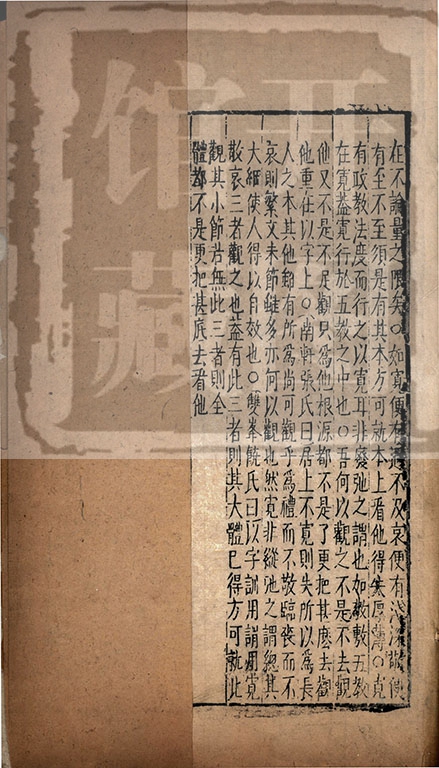 在不論量之限矣○如寬便有過不及哀便有淺深敬便
有至不至須是有其本方可就本上看他得失厚薄○克
有政教法度而行之以寬耳非廢弛之謂也如敬敷五教
在寬蓋寬行於五教之中也○吾何以觀之不是不去觀
他又不是不足觀只為他根源都不是了更把甚麼去觀
他重在以字上○南軒張氏曰居上不寬則失所以為長
人之本其他雖有所為尚可觀乎為禮而不敬臨喪而不
哀則繁文末節雖多亦何以觀也然寬非縱弛之謂總其
大綱使人得以自效也○雙峯饒氏曰以字訓用謂用寬
敬哀三者觀之也蓋有此三者則其大體已得方可就此
觀其小節若無此三者則全
體都不是更把甚底去看他
館
藏